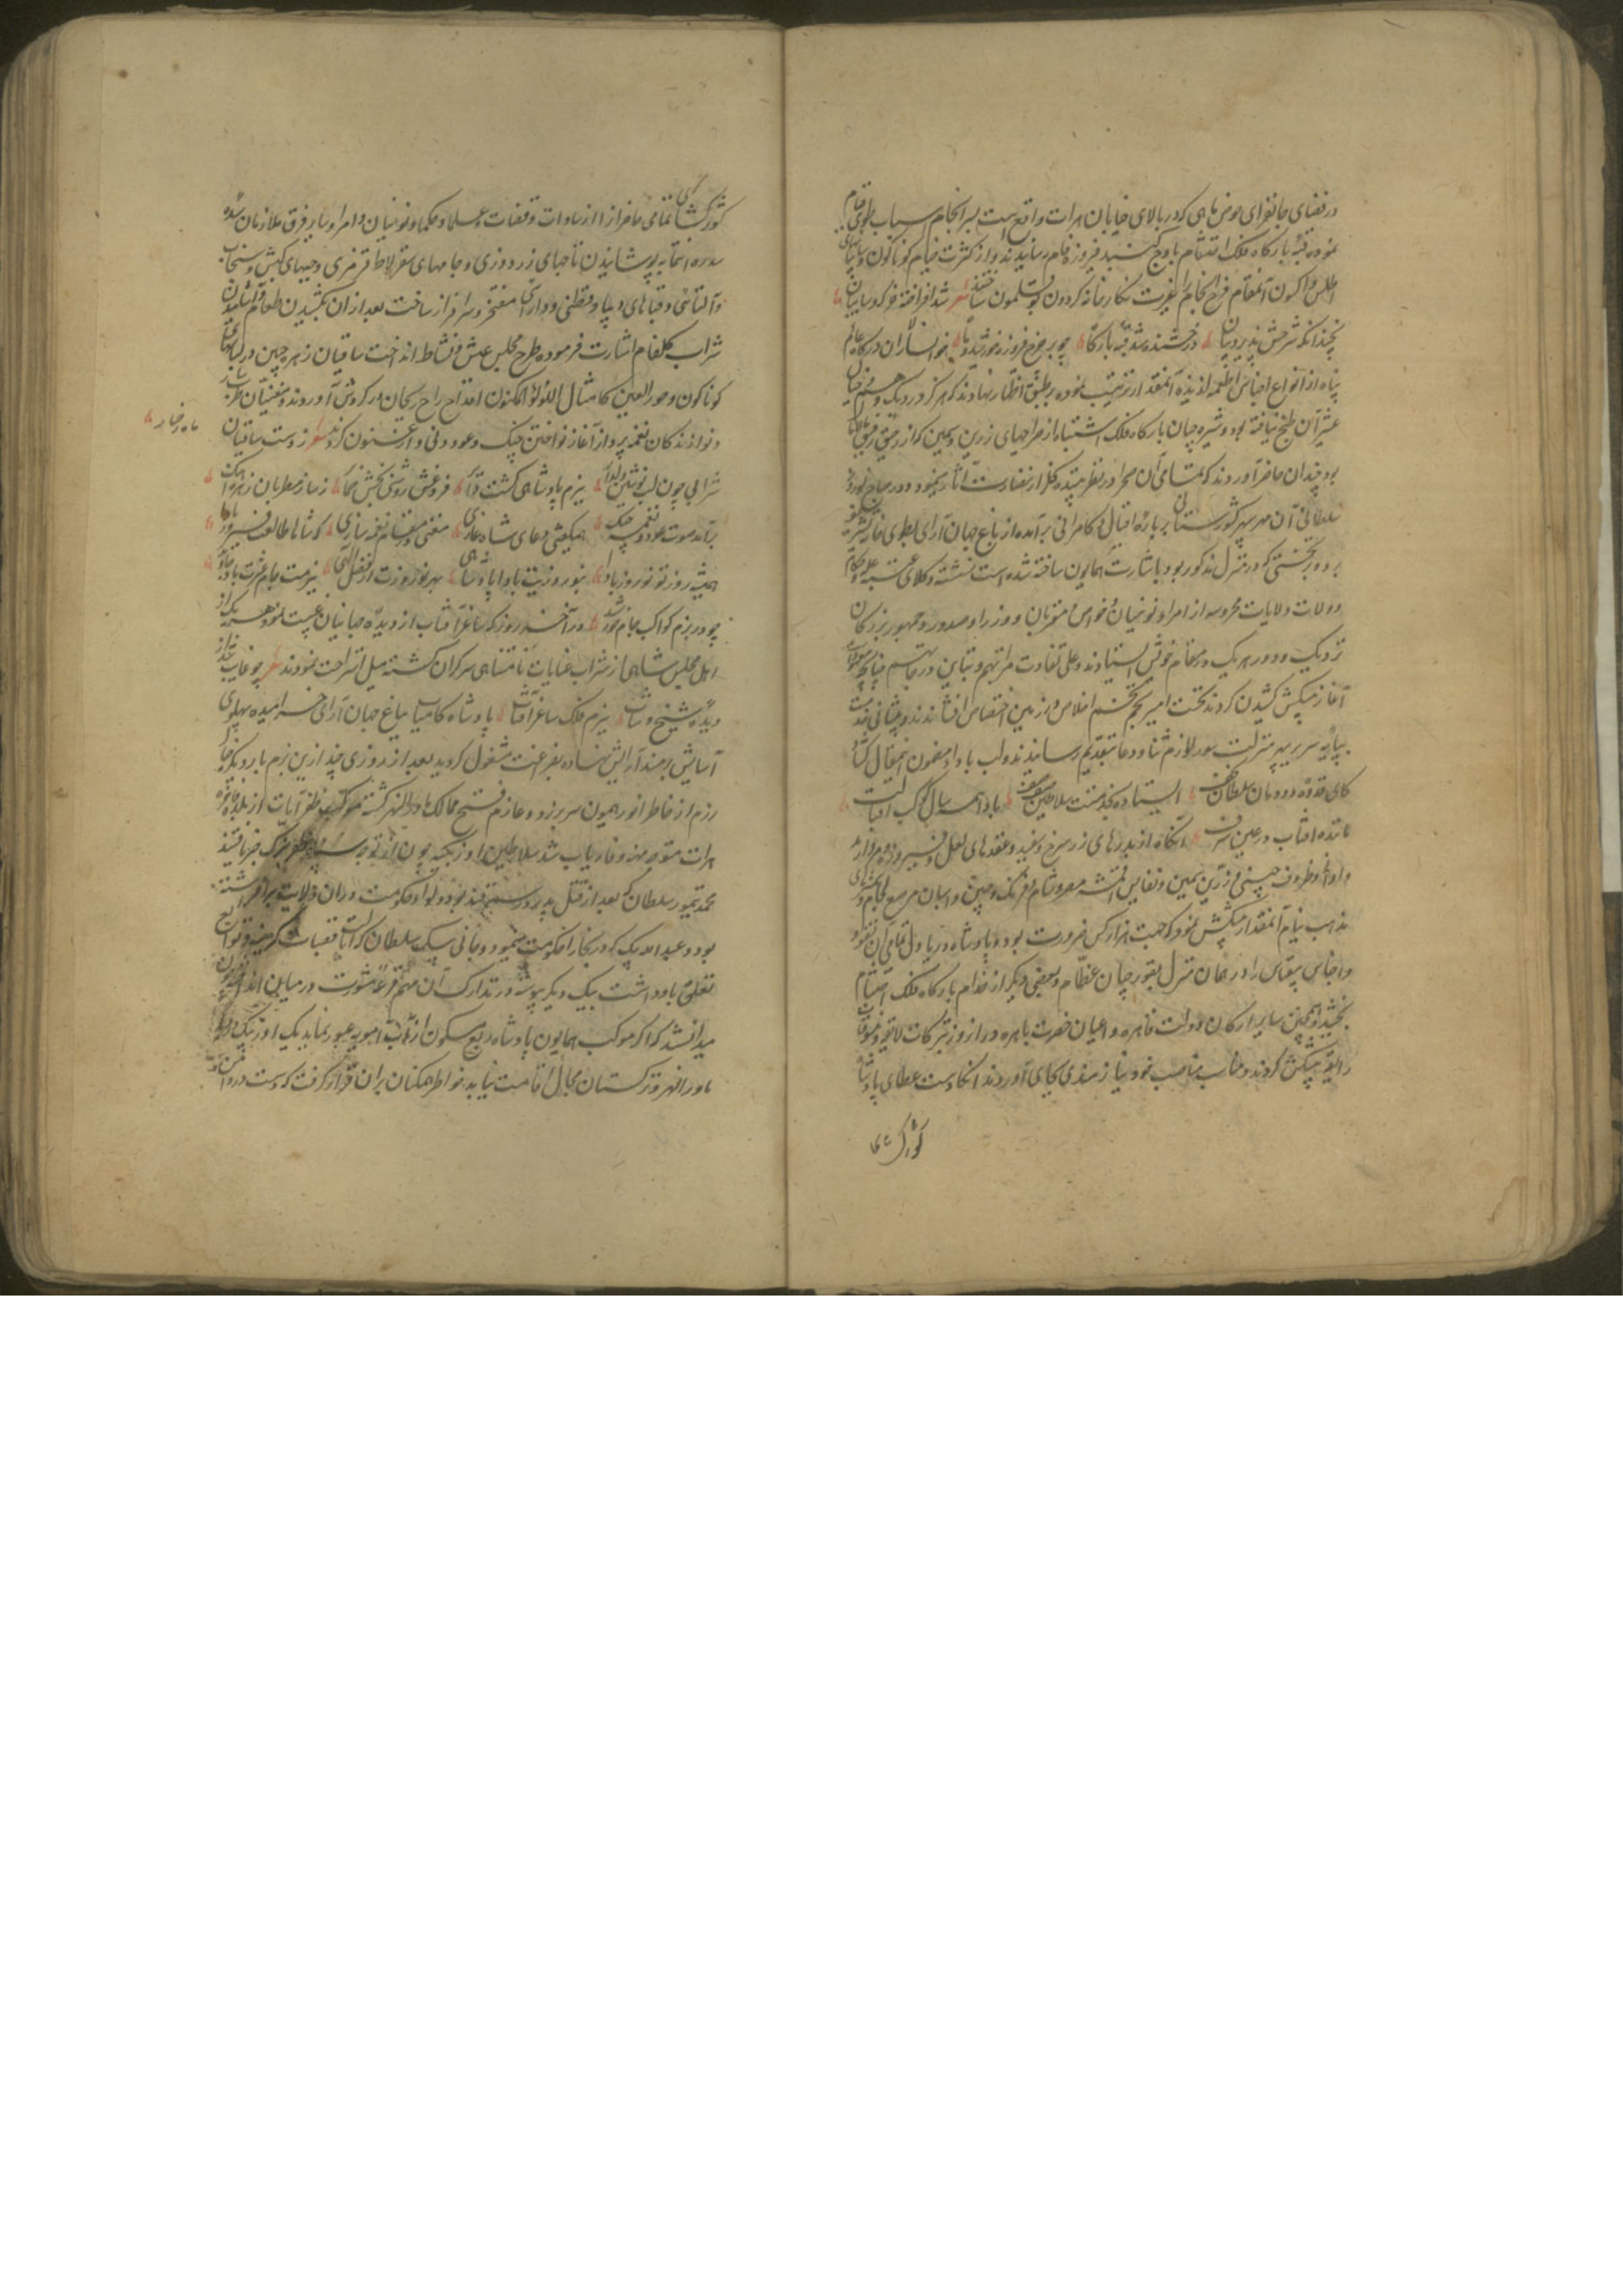 در فضای جانفزای حوض ماهی که در بالای خیابان هرات واقع است بسرانجام اسباب طوی قیام
نموده قبه بارگاه فلک احتشام باوج گنبد فیروزه فام رسانیدند و از کثرت خیام کوناکون و سایبانهای
اطلس و اکسون آنمقام فرح انجام را غیرت نگارخانه گردون بوقلمون ساختند شعر شد افراخته خرکه و سایبان
نچندانکه شرحش پذیرد بیان درخشنده شد قبه بارگاه چو بر چرخ فیروزه خورشید و ماه خوانسالاران درگاه عالم
پناه از انواع اجناس اطعمه لذیذه آنمقدار ترتیب نموده بر طبق اظهار نهادند که هرگز در دیک وهم و خیال
عشر آن طبخ نیافته بود و شیره چیان بارگاه فلک اشتباه از صراحیهای زرین و سیمین که از رحیق
بود چندان حاضر آوردند که تمامی آن صحرا در نظر بیننده گلزار نضارت آثار می نمود و در صباح نوروز
سلطانی آن مهر سپهر کشورستانی بر باره اقبال و کامرانی برآمده از باغ جهان آرای بطوی خانه تشریف
برد و بر تختی که در منزل مذکور بود باشارت همایون ساخته شده است نشسته وکلای عتبه علیه و حکام
و ولات ولایات محروسه از امرا و نوئینان و خواص و مقربان و وزرا و صدور و جمهور بزرگان
نزدیک و دور هر یک در مقام خویش ایستادند و علی تفاوت مراتبهم و تباین درجاتهم
آغاز پیشکش کشیدن کردند نخست امیر نجم تخم اخلاص در زمین اختصاص افشاندند و پیشانی خدمت
بپایه سریر سپهر منزلت سود لوازم ثنا و دعا بتقدیم رسانیدند و لب بادا مضمون اینمقال گشاد
کای قدوه دودمان سلطان نجف ایستاده بخدمتت سلاطین صف صف بادا همه سال کوکب اقبالت
مانند آفتاب در عین شرف آنگاه از بدرهای زر سرخ و سفید و عقدهای لعل و فیروزه و مروارید
و اوانی و ظروف چینی و زرین و سیمین و نفایس اقمشه مصر و شام و فرنگ و چین و اسپان مرصع لجام و
مذهب نیام آنمقدار پیشکش نمود که جهت هزار کس ضرورت بود و پادشاه دریا دل تمامی آن نقود
و اجناس بیقیاس را در همان منزل بقورچیان عظام و بعضی دیگر از خدام بارگاه فلک احتشام
بخشید و همچنین سایر ارکان دولت قاهره و اعیان حضرت باهره در آن روز تبرکات لایق و
رایق پیشکش کردند و مناسب مناصب خود نیازمندی بجای آوردند آنگاه دست عطای پادشاه
کشورکشای
کشورکشای تمامی حاضرانرا از سادات و قضات و علما و حکما و نوئینان و امرا و سایر فرق ملازمان
سده آستان به پوشانیدن تاجهای زردوزی و جامهای سقرلاط قرمزی و جبهای کیش و سنجاب
و التائی و قباهای دیبا و قطنی و دارائی مفتخر و سرافراز ساخت بعد از آن بکشیدن طعام و آشامیدن
شراب کلفام اشارت فرموده طرح مجلس عیش و نشاط انداخت ساقیان زهره جبین در لباسهای
کوناکون و حور العین کامثال اللؤلؤ المکنون اقداح راح ریحان در گردش آوردند و مغنیان
و نوازندگان نغمه پرداز آغاز نواختن چنک و عود و نی و ارغنون کردند شعر ز دست ساقیان ماه رخسار
شرابی چون لب نوشین دلدار ببزم پادشاهی گشت دایر فروغش روشنی بخش ضمایر ز ساز مطربان زهره آهنک
برآمد صوت عود و نغمه چنک همیگفتی دعای شاه غازی مغنی در مقام نغمه سازی که شاها طالعت فیروز بادا
همیشه روز تو نوروز بادا بنوروزیت بادا پادشاهی بهر نوروزت از فضل الهی
چو در بزم کواکب جام خورشید و در آخر روز که ساغر آفتاب از دیده جهانیان غیبت نمود هر یک از
اهل مجلس شاهی از شراب عنایات نامتناهی سرگران گشته میل استراحت نمودند شعر چو غایب شد از
دیده شیخ و شاب ببزم فلک ساغر آفتاب پادشاه کامیاب بباغ جهان آرای خرامیده پهلوی
آسایش بر مسند آرامش نهاده بفراغت مشغول گردید بعد از روزی چند ازین بزم بار دیگر
رزم از خاطر انور همیون سر بر زد و عازم فتح ممالک ماوراالنهر گشته موکب ظفرآیات از بلده فاخره
هرات متوجه میمنه و فاریاب شد سلاطین اوزبکیه چون از توجه سپاه ظفر ترک خبر یافتند
محمد تیمور سلطان که بعد از قتل پدر در سمرقند بود و لوای حکومت در ان ولایت برافراشته
بود و عبدالله بیک که در بخارا حکومت مینمود و جانی بیک سلطان که قصبات کرمینه و توابع
تعلق باو داشت بیک دیگر پیوسته در تدارک آن مهم قرعه مشورت در میان انداختند چون
میدانستند که اگر موکب همایون پادشاه ربع مسکون از آب امویه عبور نماید یک اوزبک را در
ماوراالنهر و ترکستان مجال اقامت نیاید خواطر همکنان بران قرار گرفت که دست در دامن